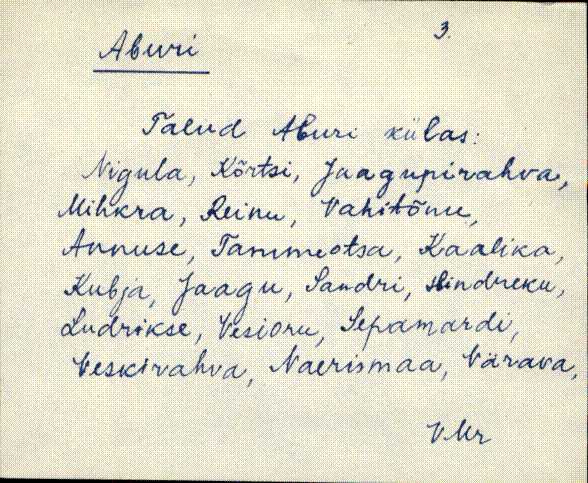 3.
Aburi
Talud Aburi külas:
Nigula, Kõrtsi, Jaagupirahva,
Mihkra, Reinu, Vahitõnu,
Annuse, Tammeotsa, Kaalika,
Kubja, Jaagu, Sandri, Hindreku,
Ludrikse, Vesioru, Sepamardi,
Veskirahva, Naerismaa, Värava,
VMr